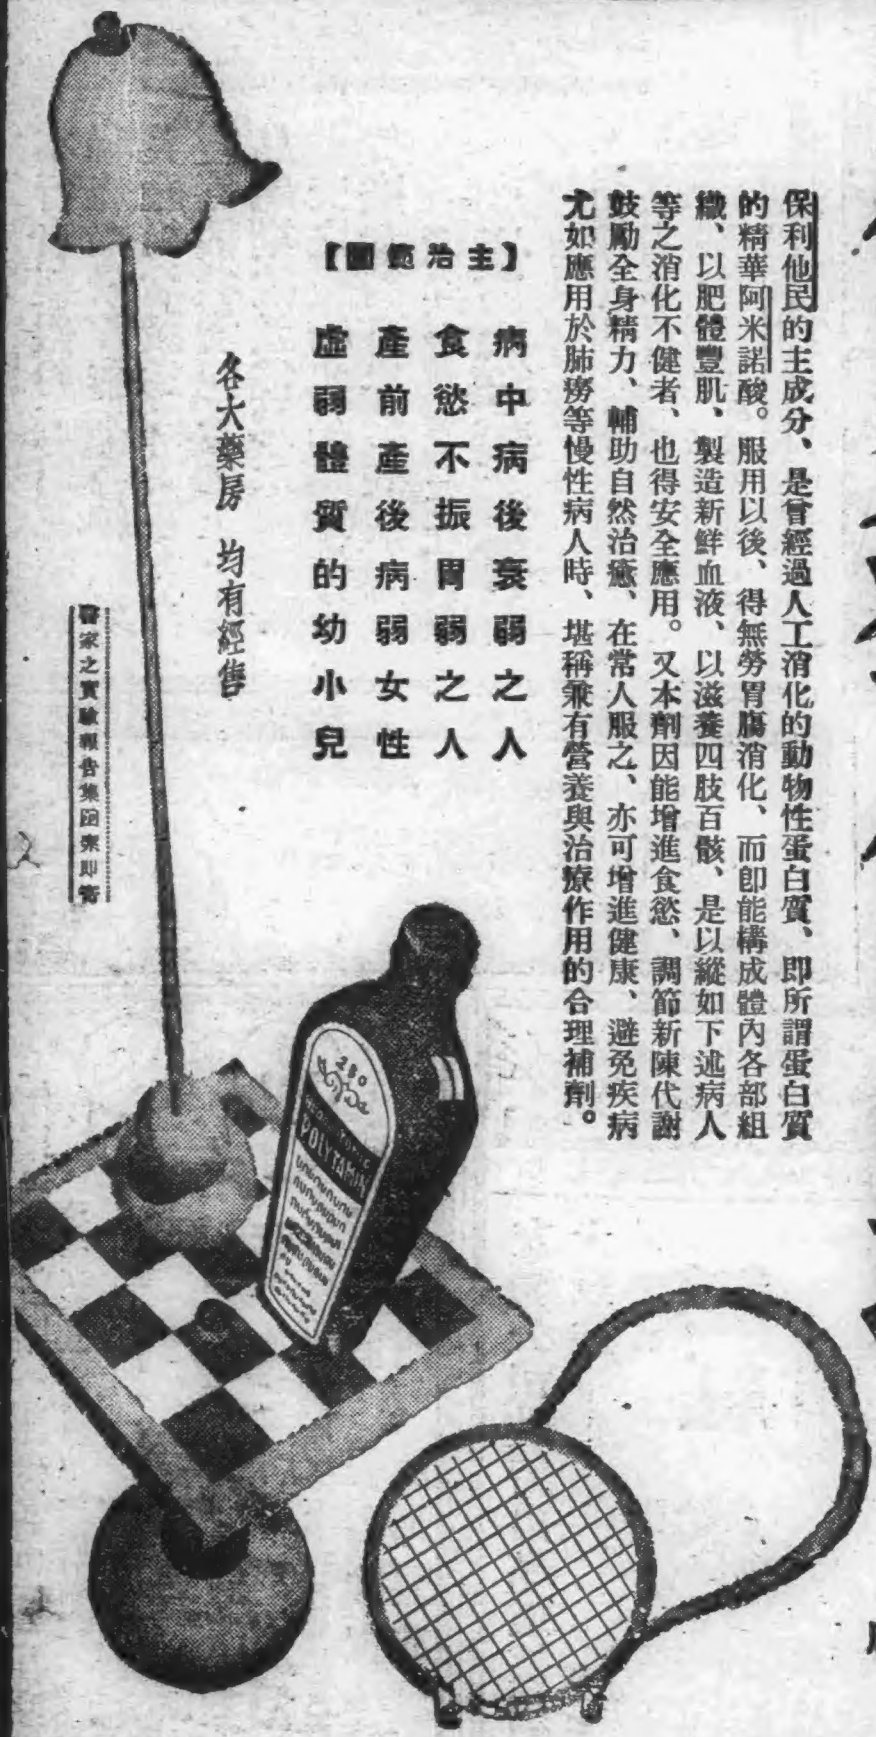 保利他民的主成分、是曾經過人工消化的動物性蛋白質、即所謂蛋白質
的精華阿米諾酸。服用以後、得無勞胃腸消化、而卽能構成體內各部組
織、以肥體豐肌、製造新鮮血液、以滋養四肢百骸、是以縱如下述病人
等之消化不健者、也得安全應用。又本劑因能增進食慾、調節新陳代謝
鼓勵全身精力、輔助自然治癒、在常人服之、亦可增進健康、避免疾病
尤如應用於肺癆等慢性病人時、堪稱兼有營養與治療作用的合理補劑。
【主治範圍】
病中病後衰弱之人
食慾不振胃弱之人
產前產後病弱女性
虛弱體質的幼小兒
各大藥房 均有經售
醫家之實驗報告集函索即寄
280
POLYTAMIN